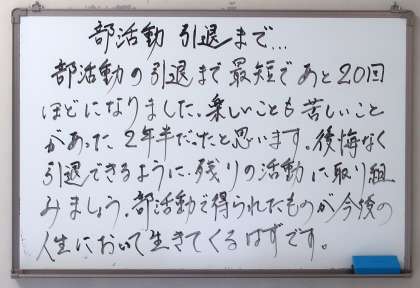 部活動 引退まで…
部活動の引退まで最短であと20回
ほどになりました。楽しいことも苦しいこと
があった2年半だったと思います。後悔なく
引退できるように、残りの活動に取り組
みましょう。部活動で得られたものが今後の
人生において生きてくるはずです。